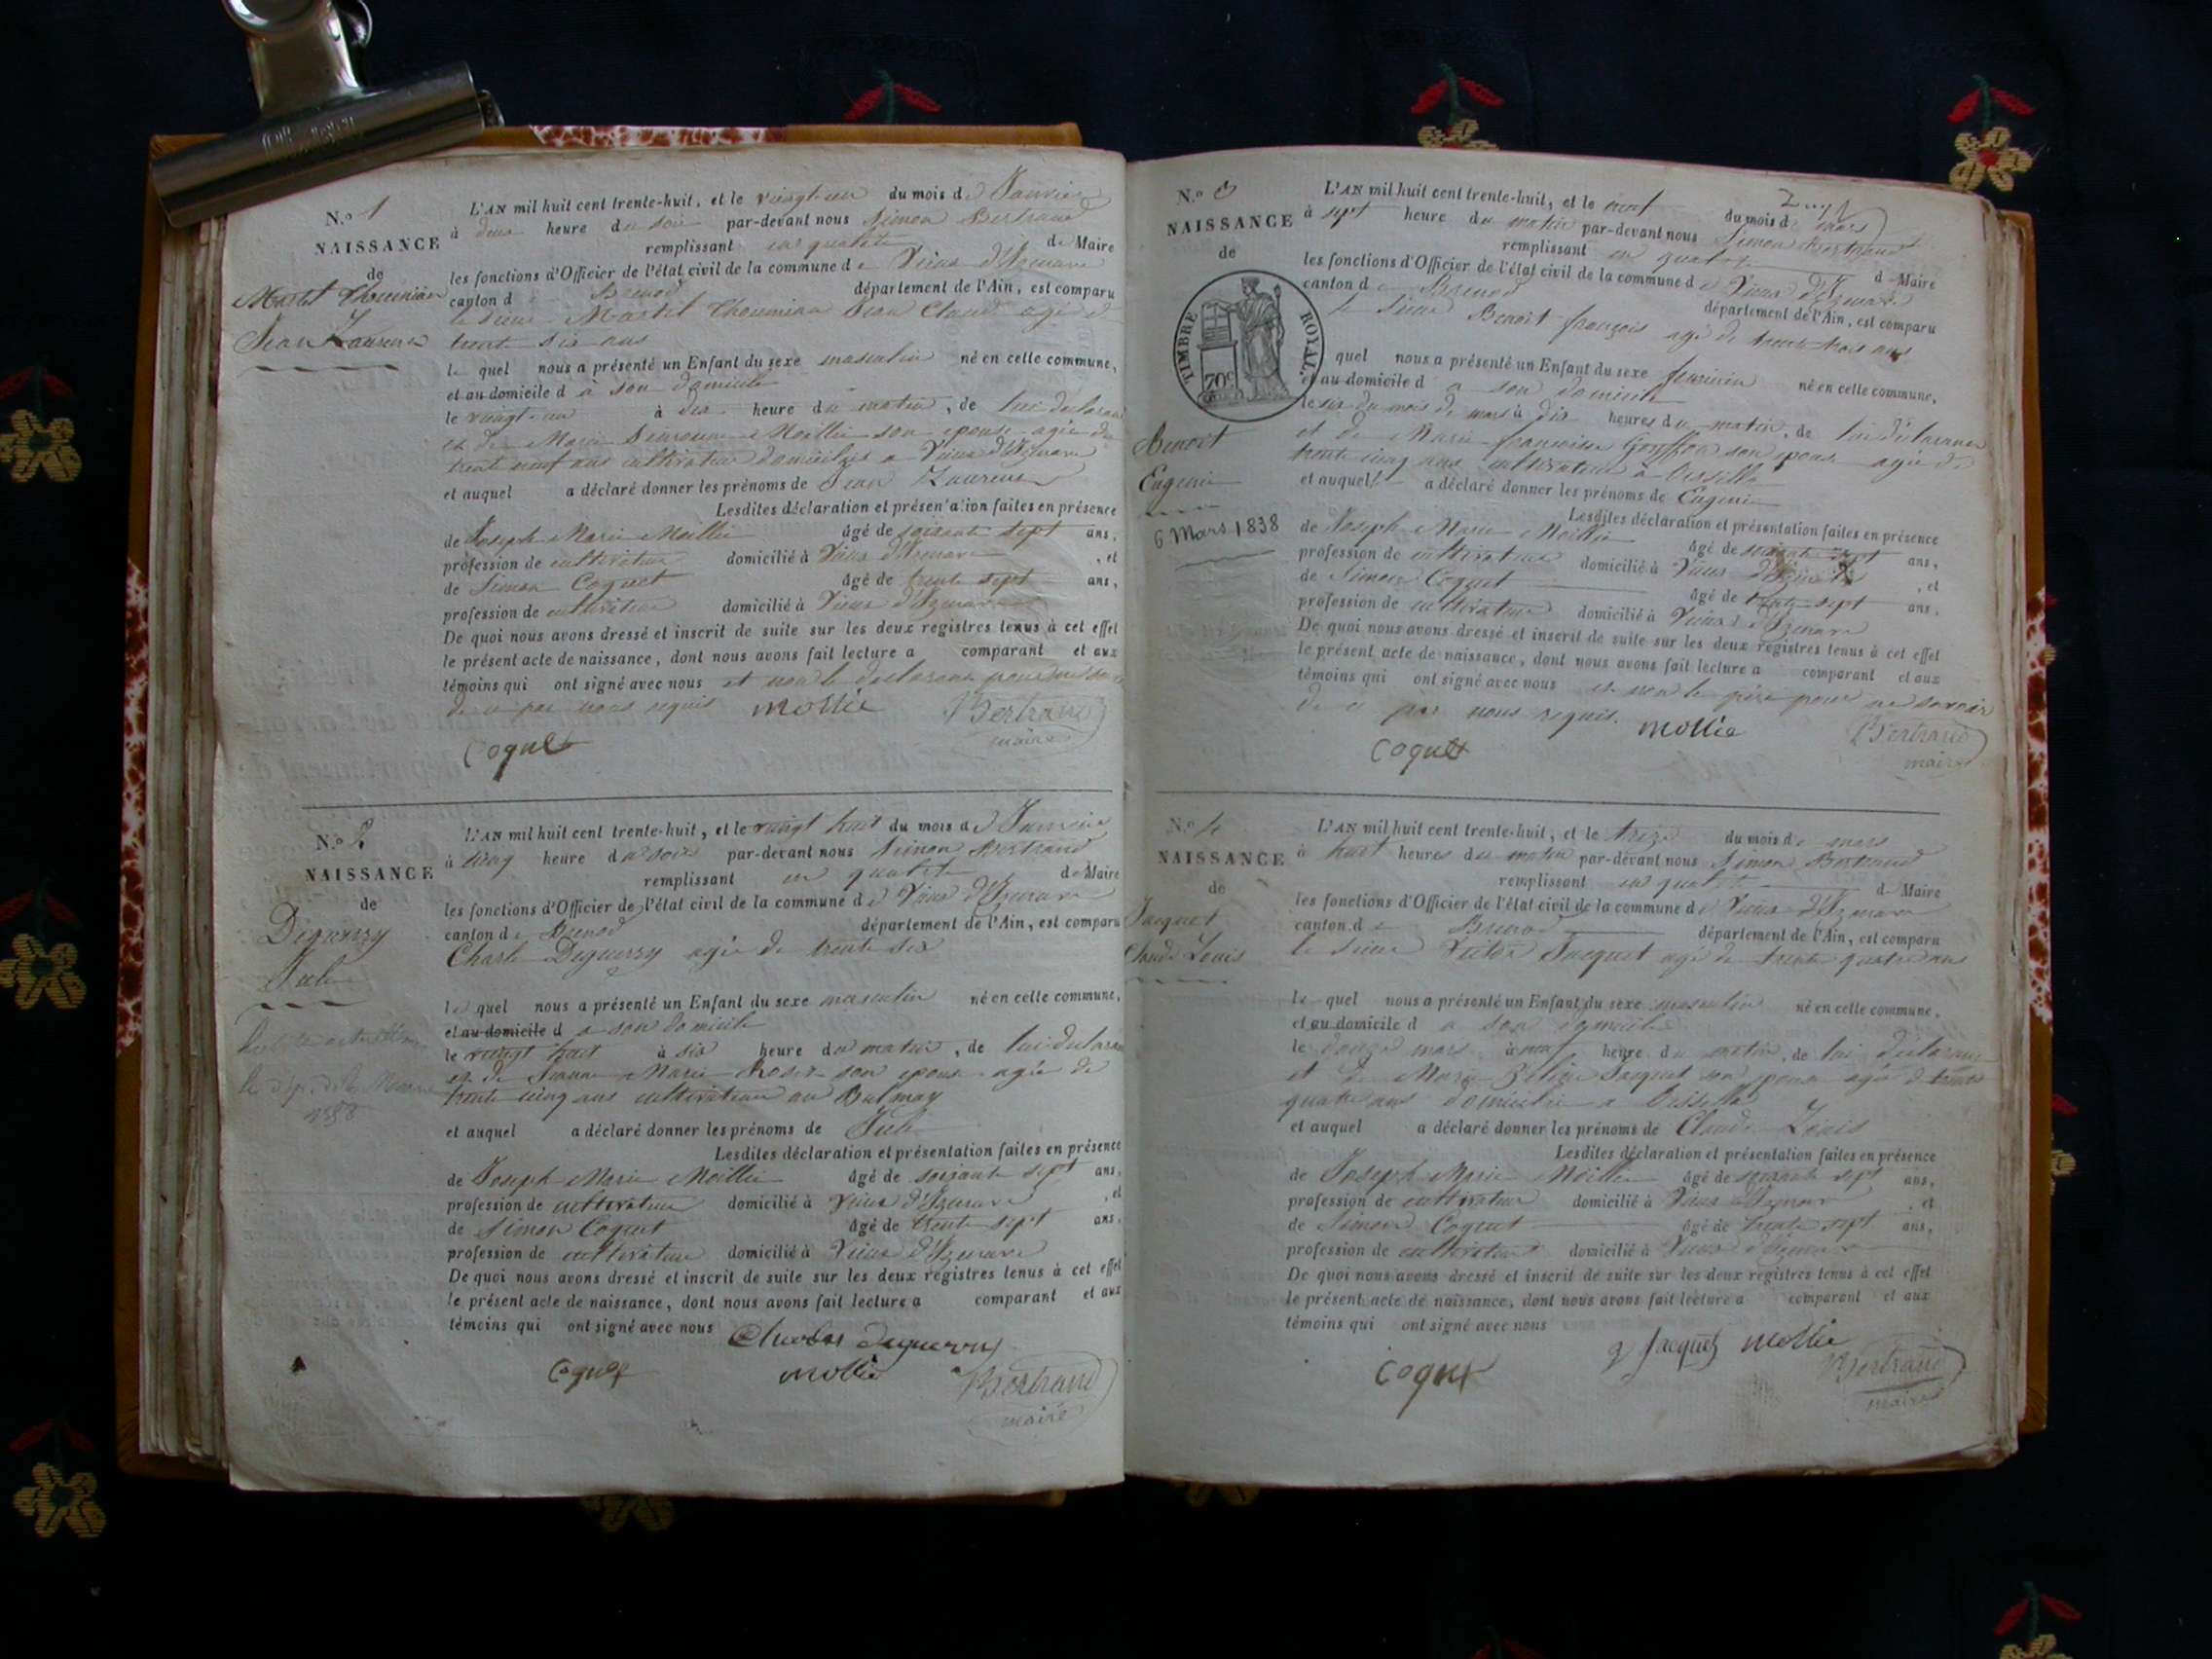 N.º 1
NAISSANCE
de
Martel Thouminian
Jean Laurent
L'AN mil huit cent trente-huit, et le vingt un du mois de Janvier
à deux heure du soir par-devant nous Simon Bertrand
remplissant en qualité de Maire
les fonctions d'Officier de l'état civil de la commune de Vieux d'Izenave
canton de Brenod département de l'Ain, est comparu
le sieur Martel Thouminian Jean Claude agé de
trente six ans
le quel nous a présenté un Enfant du sexe masculin né en cette commune,
et au domicile d à son domicile
le vingt-un à dix heure du matin, de lui déclarant
et de Marie Moillie son epouse agée de
trente neuf ans cultivateur domiciliés a Vieux d'Izenave
et auquel a déclaré donner les prénoms de Jean Laurent
Lesdites déclaration et présentation faites en présence
de Joseph Marie Moillie âgé de soixante sept ans,
profession de cultivateur domicilié à Vieux d'Izenave, et
de Simon Coquet âgé de trente sept ans,
profession de cultivateur domicilié à Vieux d'Izenave
De quoi nous avons dressé et inscrit de suite sur les deux registres tenus à cet effet
le présent acte de naissance, dont nous avons fait lecture a comparant et aux
témoins qui ont signé avec nous et non le declarant pour ne savoir
de ce par nous requis mollie Bertrand
maire
Coquet
N.º 2
NAISSANCE
de
Deguerry
Jule
1838
L'AN mil huit cent trente-huit, et le vingt huit du mois de Janvier
à cinq heure du soir par-devant nous Simon Bertrand
remplissant en qualité de Maire
les fonctions d'Officier de l'état civil de la commune de Vieux d'Izenave
canton de Brenod département de l'Ain, est comparu
Charle Deguerry agé de trente six
le quel nous a présenté un Enfant du sexe masculin né en cette commune,
et au domicile d a son domicile
le vingt huit à six heure du matin, de lui declarant
et de Jeanne Marie son epouse agée de
trente cinq ans cultivateur au Balmay
et auquel a déclaré donner les prénoms de Jule
Lesdites déclaration et présentation faites en présence
de Joseph Marie Moillie âgé de soixante sept ans,
profession de cultivateur domicilié à Vieux d'Izenave, et
de Simon Coquet âgé de trente sept ans,
profession de cultivateur domicilié à Vieux d'Izenave
De quoi nous avons dressé et inscrit de suite sur les deux registres tenus à cet effet
le présent acte de naissance, dont nous avons fait lecture a comparant et aux
témoins qui ont signé avec nous Charles deguerry
Coquet mollie Bertrand
maire
N.º 3
NAISSANCE
de
TIMBRE ROYAL.
70c
Benoit
Eugenie
6 Mars 1838
L'AN mil huit cent trente-huit, et le neuf du mois de mars
à sept heure du matin par-devant nous Simon Bertrand
remplissant en qualité de Maire
les fonctions d'Officier de l'état civil de la commune de Vieux d'Izenave
canton de Brenod département de l'Ain, est comparu
le sieur Benoit françois agé de trente trois ans
quel nous a présenté un Enfant du sexe feminin né en cette commune,
et au domicile d a son domicile
le six du mois de mars à dix heures du matin, de lui déclarant
et de Marie francoise Gouffon son epouse agée de
trente cinq ans cultivateur a
et auquel a déclaré donner les prénoms de Eugenie
Lesdites déclaration et présentation faites en présence
de Joseph Marie Moillie âgé de soixante sept ans,
profession de cultivateur domicilié à Vieux d'Izenave, et
de Simon Coquet âgé de trente sept ans,
profession de cultivateur domicilié à Vieux d'Izenave
De quoi nous avons dressé et inscrit de suite sur les deux registres tenus à cet effet
le présent acte de naissance, dont nous avons fait lecture a comparant et aux
témoins qui ont signé avec nous et non le père pour ne savoir
de ce par nous requis. mollie Bertrand
maire
Coquet
N.º 4
NAISSANCE
de
Jacquet
Claude Louis
L'AN mil huit cent trente-huit, et le treize du mois de mars
à huit heures du matin par-devant nous Simon Bertrand
remplissant en qualité de Maire
les fonctions d'Officier de l'état civil de la commune de Vieux d'Izenave
canton de Brenod département de l'Ain, est comparu
le sieur Victor Jacquet agé de trente quatre ans
le quel nous a présenté un Enfant du sexe masculin né en cette commune,
et au domicile d a son domicile
le douze mars à neuf heure du matin, de lui déclarant
et de Marie Jacquet son epouse agée de trente
quatre ans domicilié a
et auquel a déclaré donner les prénoms de Claude Louis
Lesdites déclaration et présentation faites en présence
de Joseph Marie Moillie âgé de soixante sept ans,
profession de cultivateur domicilié à Vieux d'Izenave, et
de Simon Coquet âgé de trente sept ans,
profession de cultivateur domicilié à Vieux d'Izenave
De quoi nous avons dressé et inscrit de suite sur les deux registres tenus à cet effet
le présent acte de naissance, dont nous avons fait lecture a comparant et aux
témoins qui ont signé avec nous
Jacquet mollie
Coquet Bertrand
maire